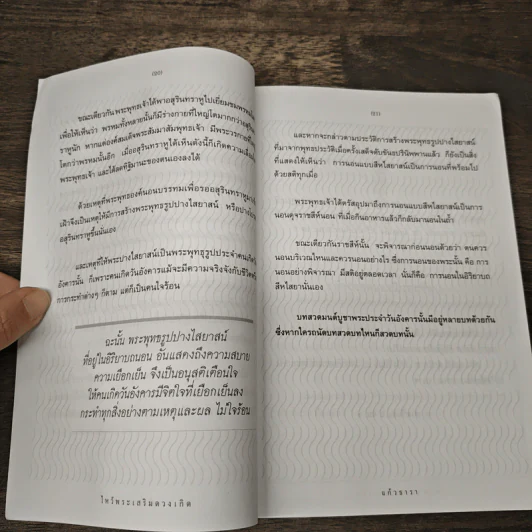 ขณะเดียวกันพระพุทธเจ้าได้พาอสุรินทราหูไปเยี่ยมชมพรหม
เพื่อให้เห็นว่า พรหมทั้งหลายนั้นก็มีร่างกายที่ใหญ่โตมากกว่าอสุริน
ราหูนัก หากแต่องค์สมเด็จพระสัมมาสัมพุทธเจ้า มีพระวรกายที่
โตกว่าพรหมนั้นอีก เมื่ออสุรินทราหูได้เห็นดังนี้ก็เกิดความเลื่อม
พระพุทธเจ้า และได้ลดทิฐิมานะของตนเองลงได้
ด้วยเหตุที่พระพุทธองค์นอนบรรทมเพื่อรออสุรินทราหูมา
เฝ้าจึงเป็นเหตุให้มีการสร้างพระพุทธรูปปางไสยาสน์ หรือปาง
อสุรินทราหูขึ้นนั่นเอง
และเหตุที่ให้พระปางไสยาสน์เป็นพระพุทธรูปประจำคนเกิด
อังคารนั้น ก็เพราะคนเกิดวันอังคารแม้จะมีความจริงจังกับชีวิต
การกระทำต่างๆ ก็ตาม แต่ก็เป็นคนใจร้อน
ฉะนั้น พระพุทธรูปปางไสยาสน์
ที่อยู่ในอิริยาบถนอน อันแสดงถึงความสบาย
ความเยือกเย็น จึงเป็นอนุสติเตือนใจ
ให้คนเกิดวันอังคารมีจิตใจที่เยือกเย็นลง
กระทำทุกสิ่งอย่างตามเหตุและผล ไม่ใจร้อน
ไหว้พระเสริมดวงเกิด
และหากจะกล่าวตามประวัติการสร้างพระพุทธรูปปางไสยาสน์
ที่มาจากพุทธประวัติเมื่อครั้งเสด็จดับขันธปรินิพพานแล้ว ก็ยังเป็นสิ่ง
ที่แสดงให้เห็นว่า การนอนแบบสีหไสยาสน์เป็นการนอนที่พร้อมไป
ด้วยสติทุกเมื่อ
พระพุทธเจ้าได้ตรัสอุปมาถึงการนอนแบบสีหไสยาสน์เป็นการ
นอนดุจราชสีห์นอน ที่เมื่อกินอาหารแล้วก็กลับมานอนในถ้ำ
ขณะเดียวกันราชสีห์นั้น จะพิจารณาก่อนนอนด้วยว่า ตนควร
นอนบริเวณไหนและควรนอนอย่างไร ซึ่งการนอนของพระนั้น คือ การ
นอนอย่างพิจารณา มีสติอยู่ตลอดเวลา นั่นก็คือ การนอนในอิริยาบถ
สีหไสยานั่นเอง
บทสวดมนต์บูชาพระประจำวันอังคารนั้นมีอยู่หลายบทด้วยกัน
ซึ่งหากใครถนัดบทสวดบทไหนก็สวดบทนั้น
แก้วธารา